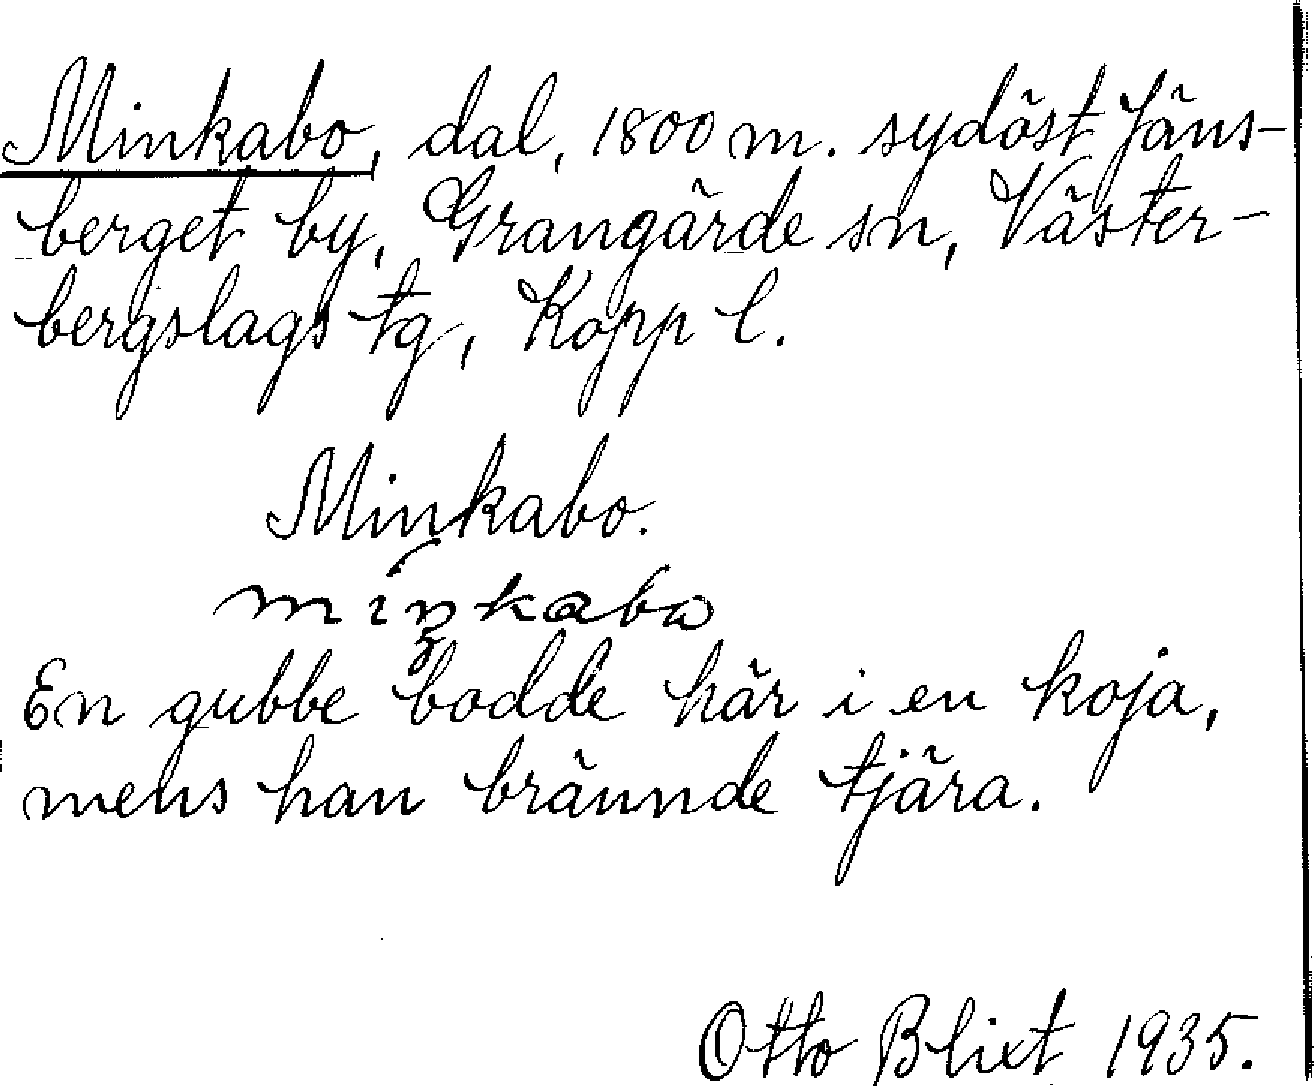 Minkabo, dal, 1800 m. sydöst Jäns-
berget by, Grangärde sn, Väster-
bergslags tg, Kopp l.
Minkabo.
En gubbe bodde här i en koja,
mens han brände tjära.
Otto Blixt 1935.